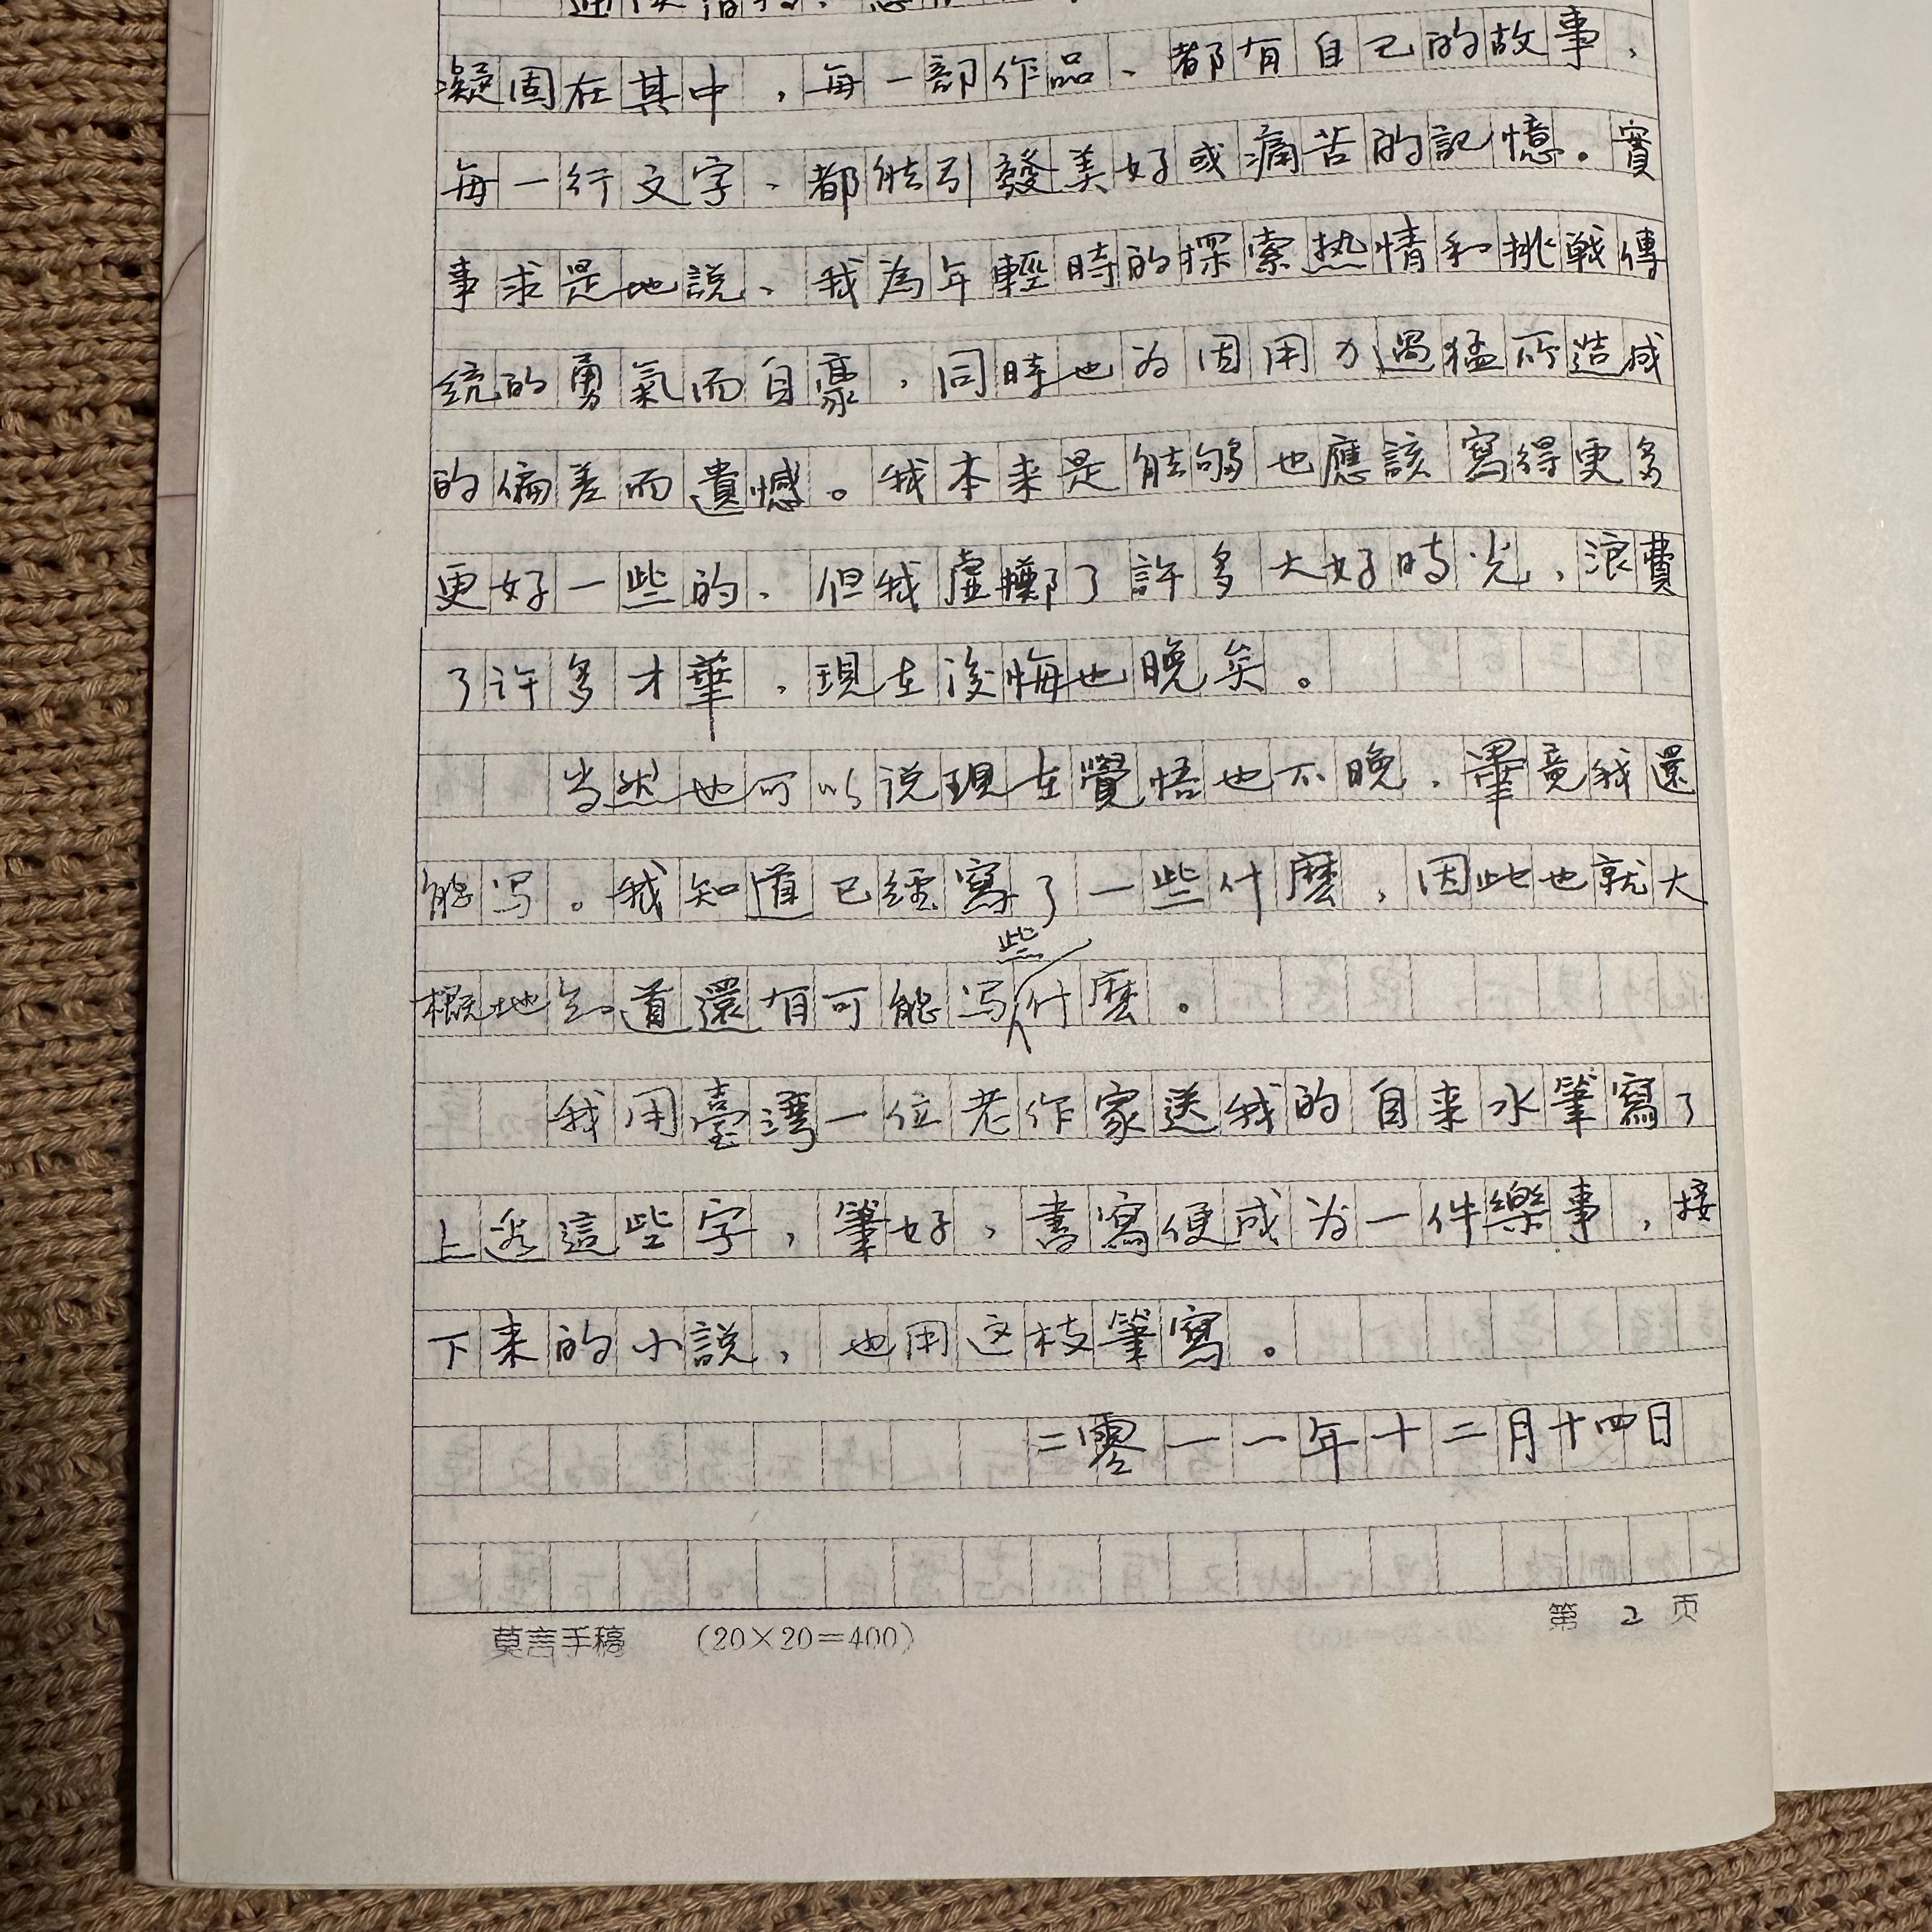 凝固在其中，每一部作品、都有自己的故事，
每一行文字、都能引發美好或痛苦的記憶。實
事求是地說、我為年輕時的探索热情和挑戰傳
統的勇氣而自豪，同時也为因用力過猛所造成
的偏差而遺憾。我本来是能够也應該寫得更多
更好一些的、但我虛擲了許多大好時光，浪費
了许多才華，現在後悔也晚矣。
当然也可以说現在覺悟也不晚，畢竟我還
能写。我知道已經寫了一些什麼，因此也就大
概地知道還有可能写些什麼。
我用臺灣一位老作家送我的自来水筆寫了
上述這些字，筆好，書寫便成为一件樂事，接
下来的小說，也用这枝筆寫。
二零一一年十二月十四日
莫言手稿 (20×20=400) 第 2 页